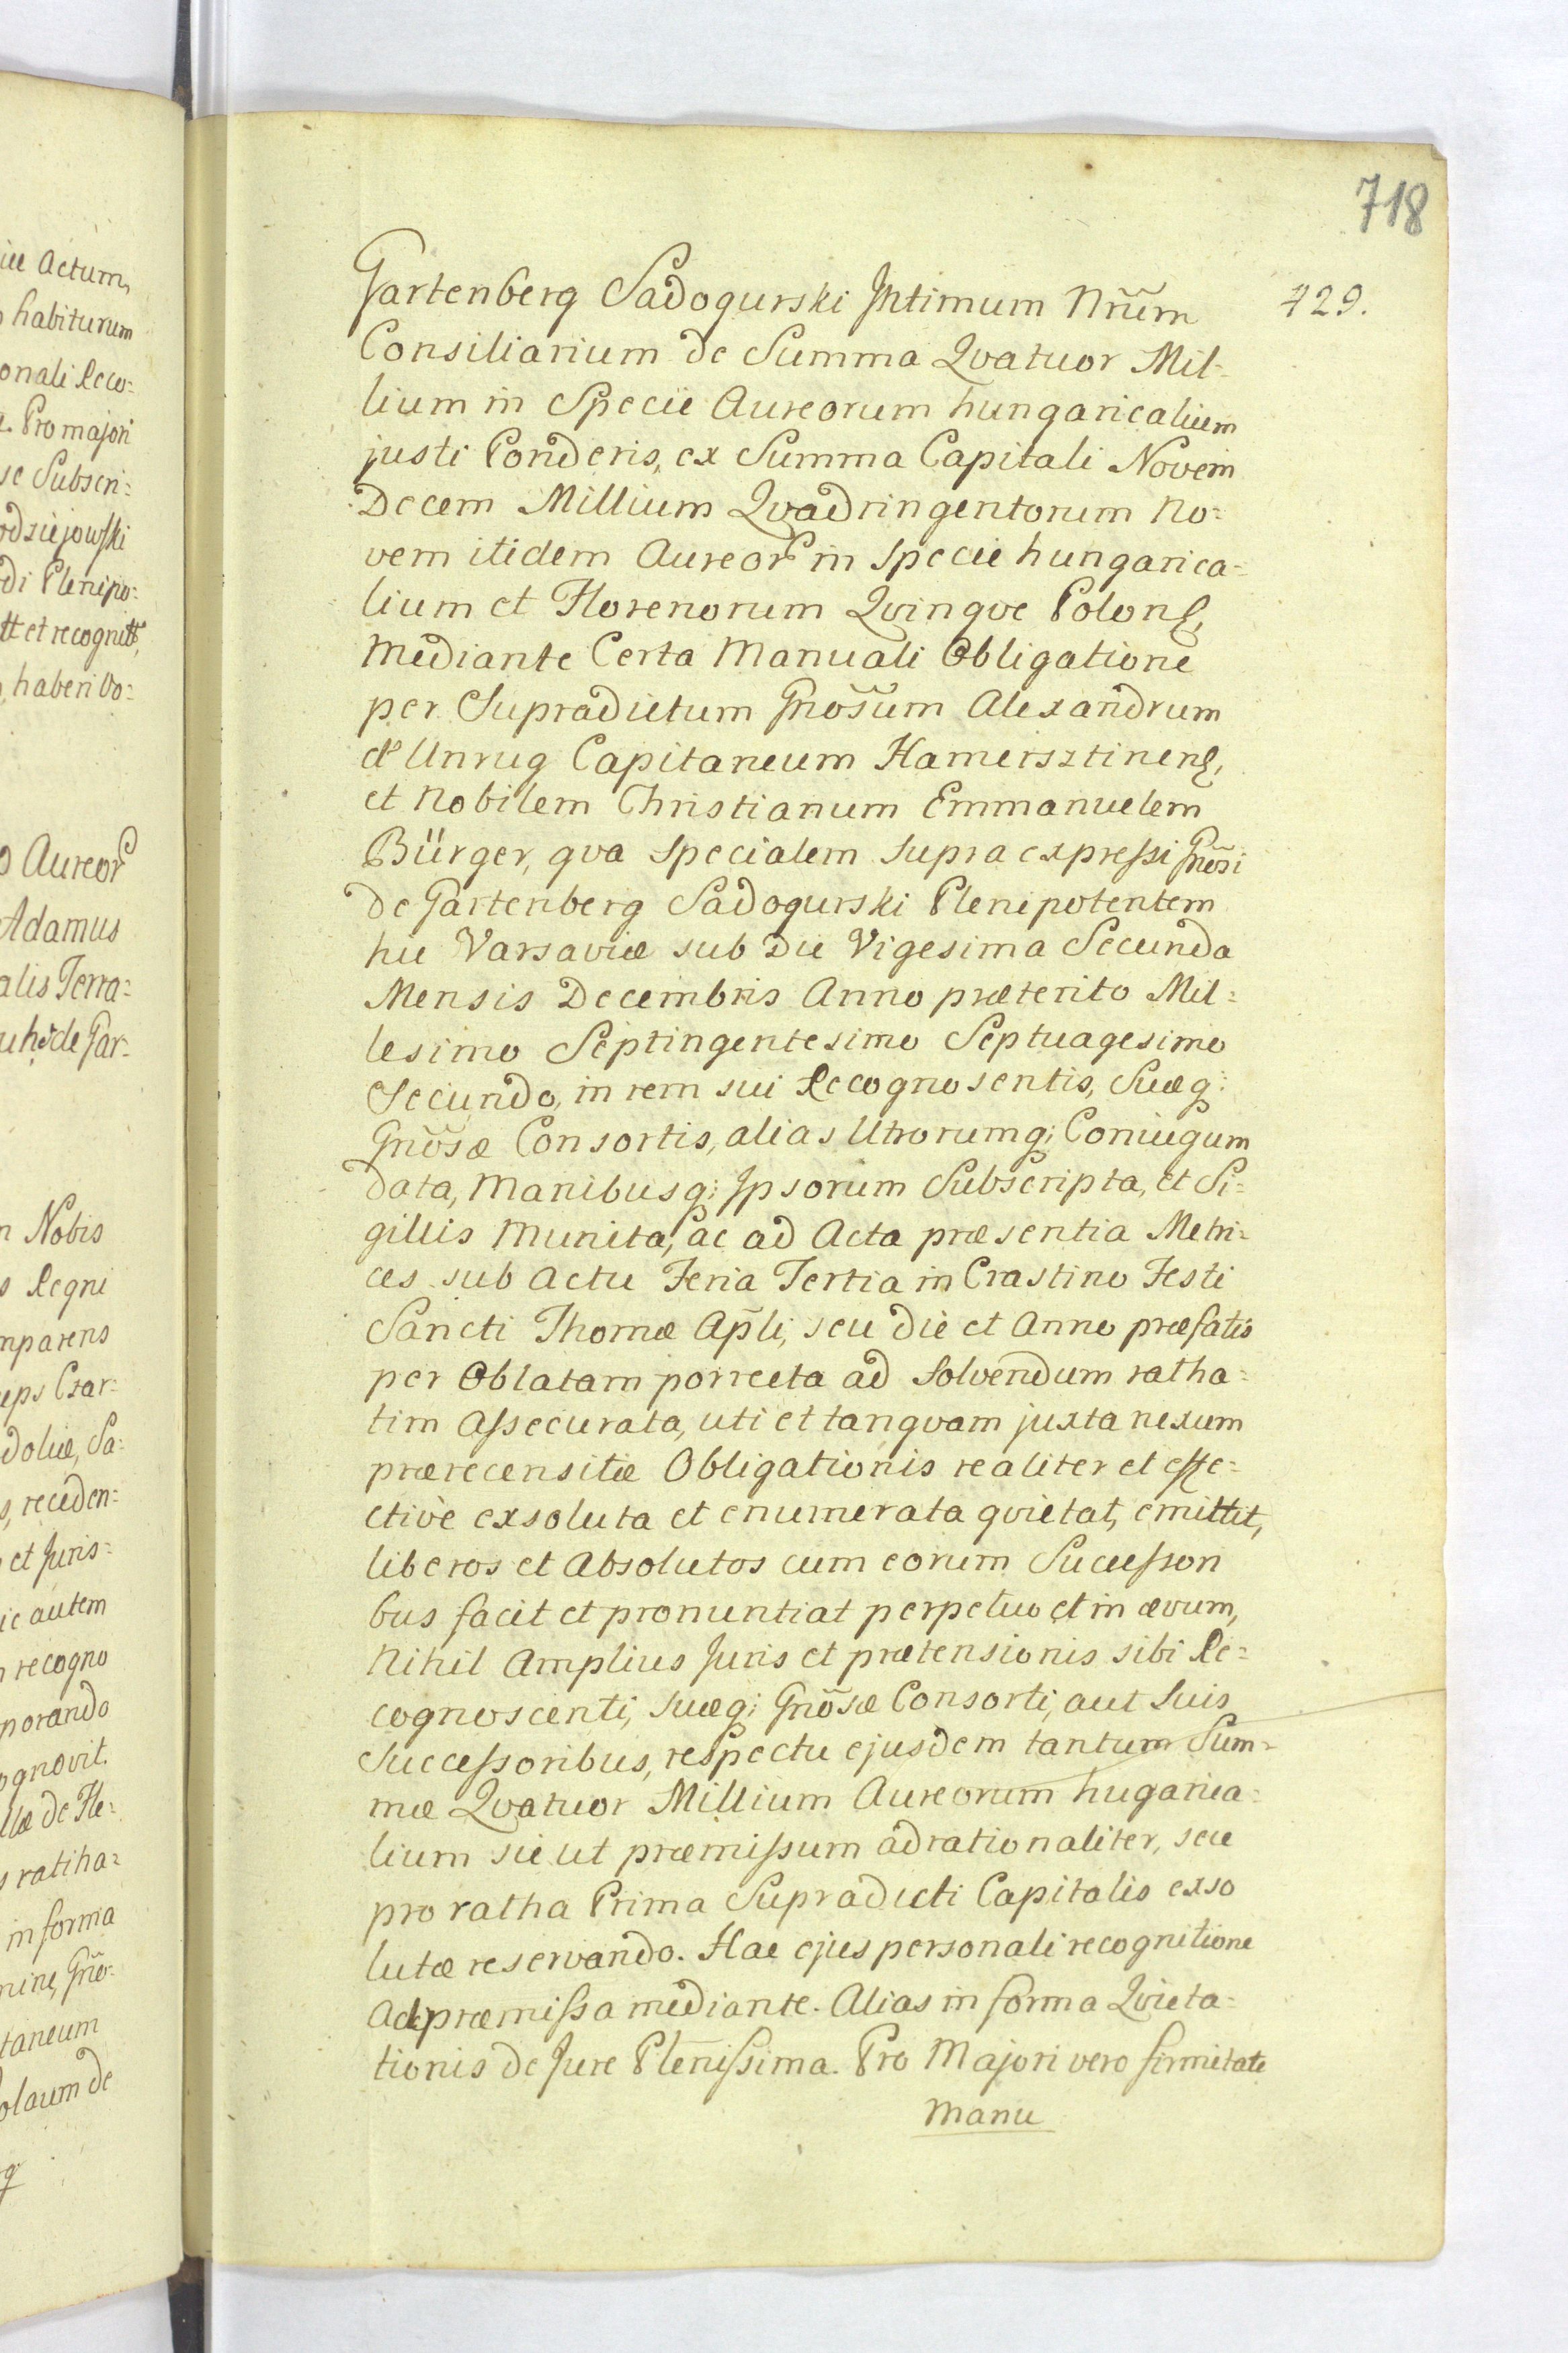 718
729.
Gartenberg Sadogurski Intimum Nrũm
Consiliarium de Summa Qvatuor Mil-
lium in Specie Aureorum hungaricalium
justi Ponderis, ex Summa Capitali Novem
Decem Millium Qvadringentorum No=
vem itidem Aureor in Specie hungarica=
lium et Florenorum Qvinqve Polon,
Mediante Certa Manuali Obligatione
per Supradictum Gnõsum Alexandrum
de Unrug Capitaneum Hamersztinen,
et Nobilem Christianum Emmanuelem
Bürger, qva Specialem supra expressi Gnõsi
de Gartenberg Sadogurski Plenipotentem
hic Varsaviæ sub Die Vigesima Secunda
Mensis Decembris Anno præterito Mil=
lesimo Septingentesimo Septuagesimo
Secundo, in rem sui Recognosentis, Suæq;
Gnõsæ Consortis, alias Utrorumq; Coniugum
data, Manibusq; Ipsorum Subscripta, et Si=
gillis Munita, ac ad Acta præsentia Metri=
ces sub Actu Feria Tertia in Crastino Festi
Sancti Thomæ Apłi, seu die et Anno præfatis
per Oblatam porrecta ad Solvendum ratha=
tim Assecurata, uti et tanqvam juxta nexum
prærecensitæ Obligationis realiter et effe=
ctivè exsoluta et enumerata qvietat, emittit,
liberos et Absolutos cum eorum Successori
bus facit et pronuntiat perpetuo et in ævum,
Nihil Amplius Juris et prætensionis sibi Re=
cognoscenti, Suæq; Gnõsæ Consorti, aut Suis
Successoribus, respectu ejusdem tantum Sum=
mæ Qvatuor Millium Aureorum hugarica=
lium sic ut præmissum adrationaliter, seu
pro ratha Prima Supradicti Capitalis exso
lutæ reservando. Hac ejus personali recognitione
Ad præmissa mediante. Alias in forma Qvieta=
tionis de Jure Plenissima. Pro Majori vero firmitate
Manu
iæ Actum,
habiturum
onali Reco=
Pro majori
se Subscri=
odziejowski
di Plenipo=
tt et recognitt,
haberi Vo=
Aureor
Adamus
alis Terra=
de Gar=
Nobis
Regni
mparens
eps Czar=
doliæ, Sa=
receden=
et Juris=
ic autem
recogno
porando
ognovit.
llæ de Fle=
ratiha=
in forma
mine, Gño=
taneum
olaum de